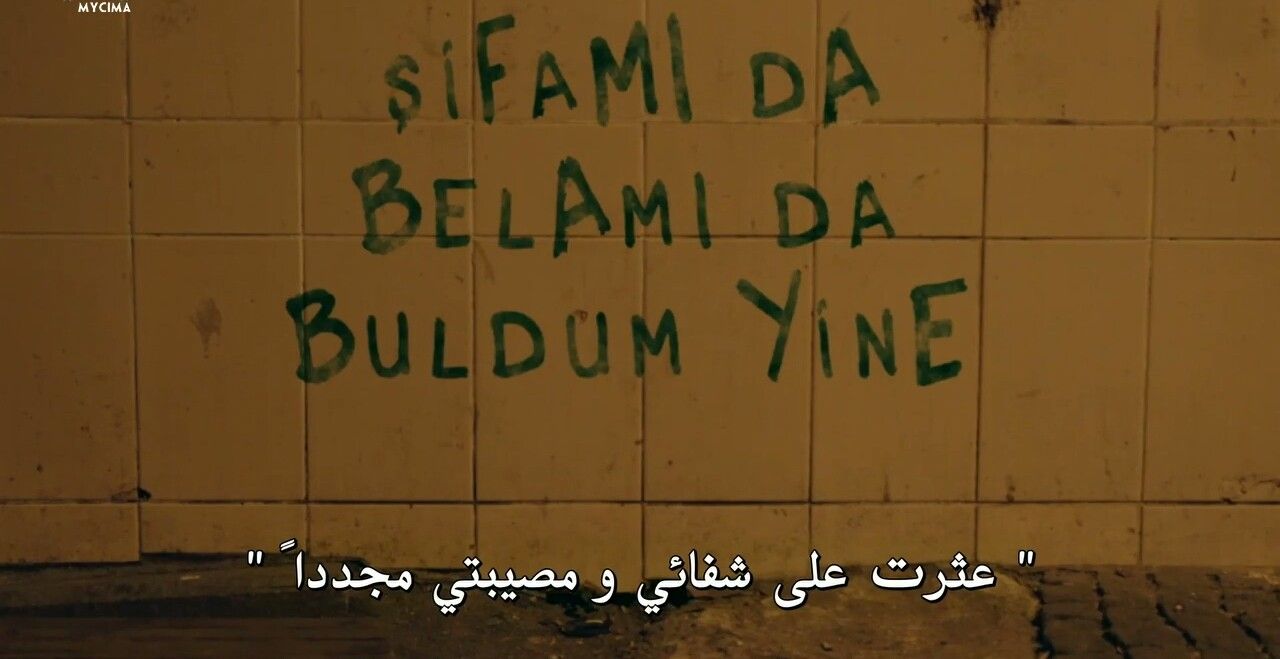 MYCIMA
ŞİFAMI DA
BELAMI DA
BULDUM YİNE
" عثرت على شفائي و مصيبتي مجدداً "